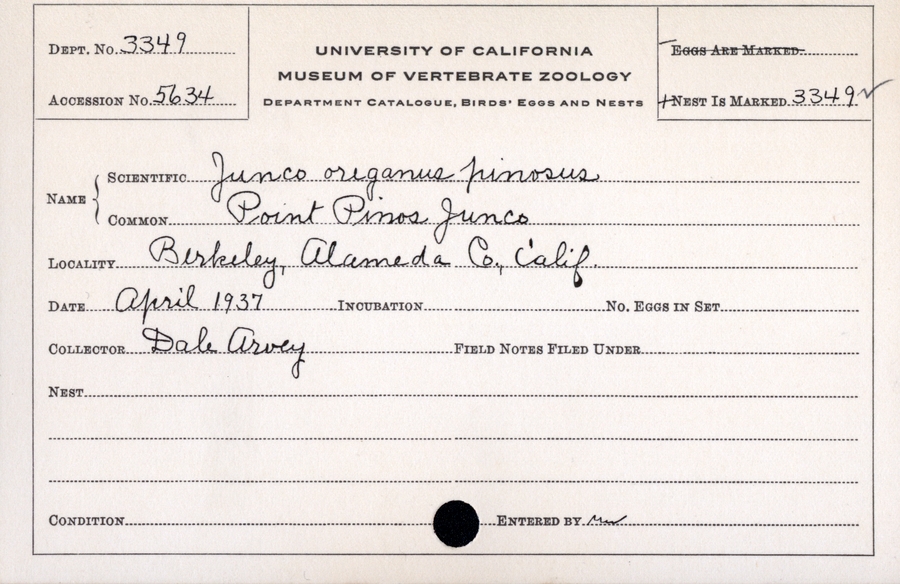 DEPT. NO. 3349
ACCESSION NO. 5634
UNIVERSITY OF CALIFORNIA
MUSEUM OF VERTEBRATE ZOOLOGY
DEPARTMENT CATALOGUE, BIRDS' EGGS AND NESTS
EGGS ARE MARKED
NEST IS MARKED 3349
NAME
SCIENTIFIC Junco oreganus pinosus
COMMON Point Pinos Junco
LOCALITY Berkeley, Alameda Co., Calif.
DATE April 1937 INCUBATION NO. EGGS IN SET
COLLECTOR Dale Arvey FIELD NOTES FILED UNDER
NEST
CONDITION ENTERED BY